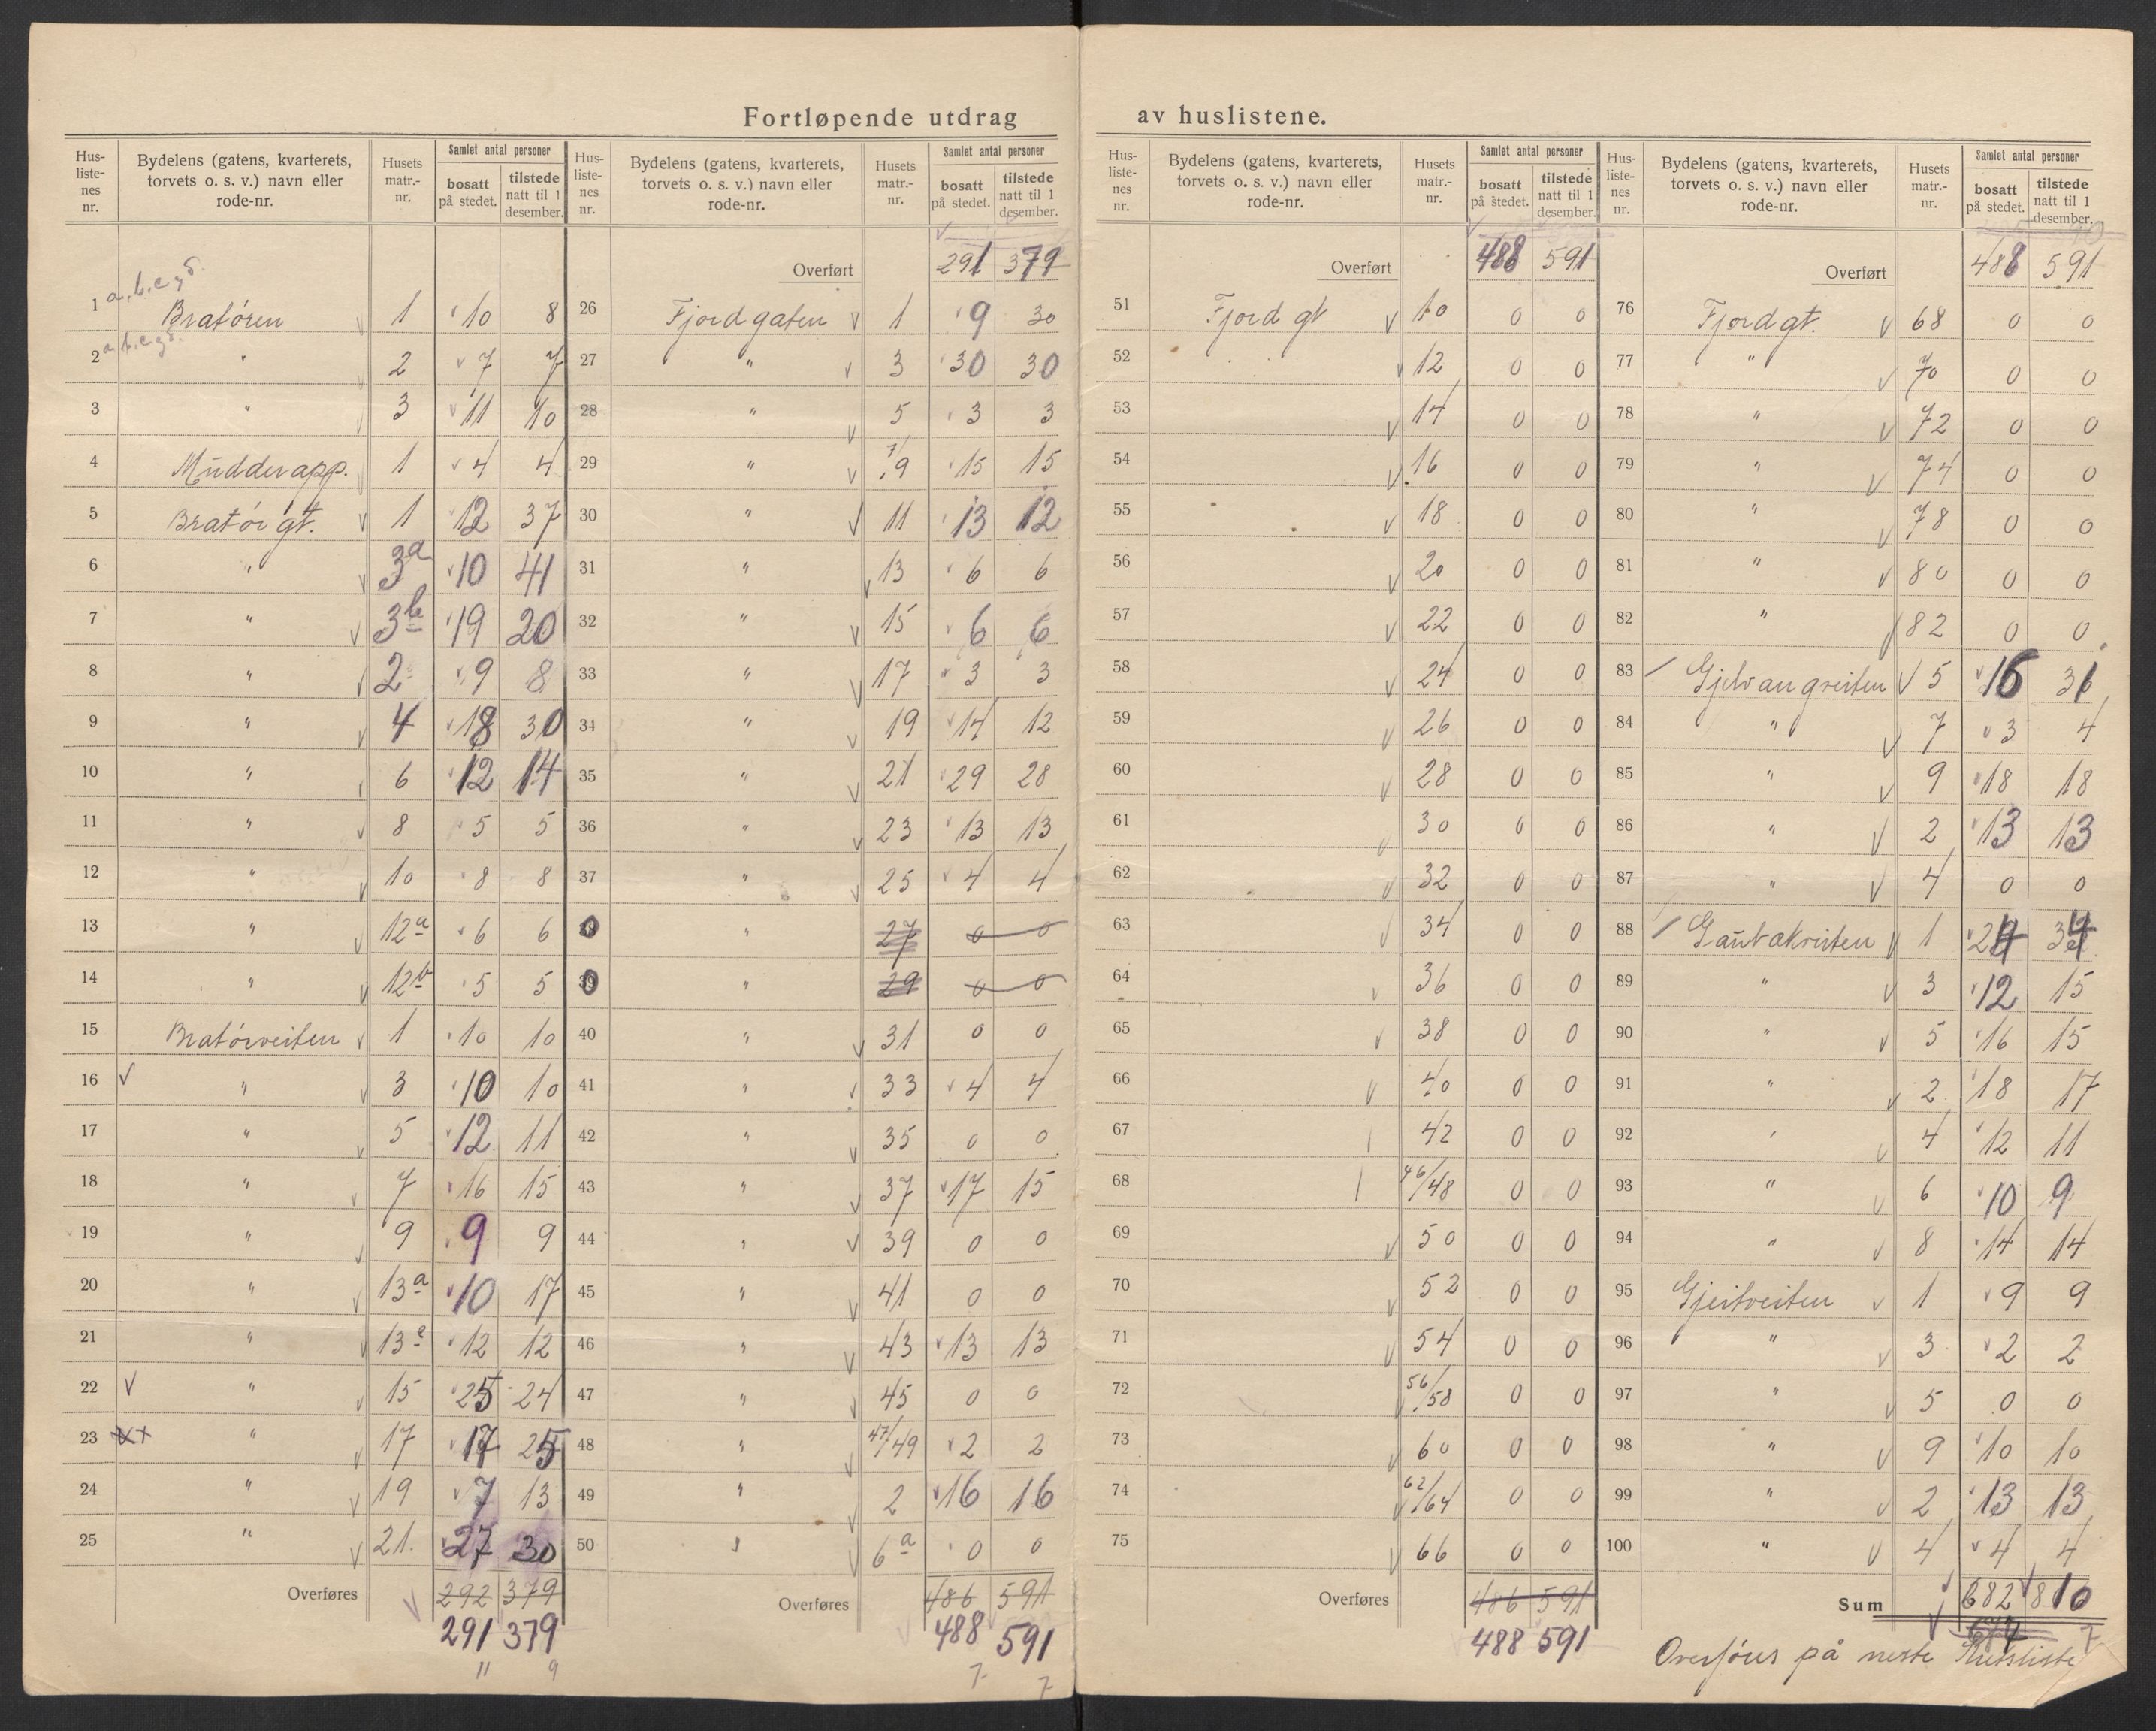 Fortløpende utdrag av huslistene.
Hus-liste-nes nr. | Bydelens (gatens, kvarterets, torvets o. s. v.) navn eller rode-nr. | Husets matr.-nr. | Samlet antal personer | bosatt på stedet. | tilstede natt til 1 desember.
a.b.c g d.
1 Bratøren 1 10 8
a.b.c g d.
2 " 2 7 7
3 " 3 11 10
4 Mudderapp. 1 4 4
5 Bratør gt. 1 12 37
6 " 3a 10 41
7 " 3b 19 20
8 " 2 9 8
9 " 4 18 30
10 " 6 12 14
11 " 8 5 5
12 " 10 8 8
13 " 12a 6 6
14 " 12b 5 5
15 Bratørveiten 1 10 10
16 " 3 10 10
17 " 5 12 11
18 " 7 16 15
19 " 9 9 9
20 " 13a 10 17
21 " 13c 12 12
22 " 15 25 24
23 " 17 17 25
24 " 19 7 13
25 " 21 27 30
Overføres 292 379
291 379
11 9
Hus-liste-nes nr. | Bydelens (gatens, kvarterets, torvets o. s. v.) navn eller rode-nr. | Husets matr.-nr. | Samlet antal personer | bosatt på stedet. | tilstede natt til 1 desember.
Overført 291 379
26 Fjordgaten 1 9 30
27 " 3 30 30
28 " 5 3 3
29 " 7/9 15 15
30 " 11 13 12
31 " 13 6 6
32 " 15 6 6
33 " 17 3 3
34 " 19 14 12
35 " 21 29 28
36 " 23 13 13
37 " 25 4 4
" 27 0 0
39 " 29 0 0
40 " 31 0 0
41 " 33 4 4
42 " 35 0 0
43 " 37 17 15
44 " 39 0 0
45 " 41 0 0
46 " 43 13 13
47 " 45 0 0
48 " 47/49 2 2
49 " 2 16 16
50 " 6a 0 0
Overføres 486 591
488 591
7 7
Hus-liste-nes nr. | Bydelens (gatens, kvarterets, torvets o. s. v.) navn eller rode-nr. | Husets matr.-nr. | Samlet antal personer | bosatt på stedet. | tilstede natt til 1 desember.
Overført 488 591
51 Fjord gt 10 0 0
52 12 0 0
53 14 0 0
54 16 0 0
55 18 0 0
56 20 0 0
57 22 0 0
58 24 0 0
59 26 0 0
60 28 0 0
61 30 0 0
62 32 0 0
63 34 0 0
64 36 0 0
65 38 0 0
66 40 0 0
67 42 0 0
68 46/48 0 0
69 50 0 0
70 52 0 0
71 54 0 0
72 56/58 0 0
73 60 0 0
74 62/64 0 0
75 66 0 0
Overføres 486 591
488 591
Hus-liste-nes nr. | Bydelens (gatens, kvarterets, torvets o. s. v.) navn eller rode-nr. | Husets matr.-nr. | Samlet antal personer | bosatt på stedet. | tilstede natt til 1 desember.
Overført 488 591
76 Fjordgt. 68 0 0
77 " 70 0 0
78 " 72 0 0
79 " 74 0 0
80 " 78 0 0
81 " 80 0 0
82 " 82 0 0
83 Gjelvangveiten 5 16 31
84 " 7 3 4
85 " 9 18 18
86 " 2 13 13
87 " 4 0 0
88 Gautakveiten 1 24 34
89 " 3 12 15
90 " 5 16 15
91 " 2 18 17
92 " 4 12 11
93 " 6 10 9
94 " 8 14 14
95 Gjeitveiten 1 9 9
96 " 3 2 2
97 " 5 0 0
98 " 9 10 10
99 " 2 13 13
100 " 4 4 4
Sum 682 810
7
Overføres på neste Husliste